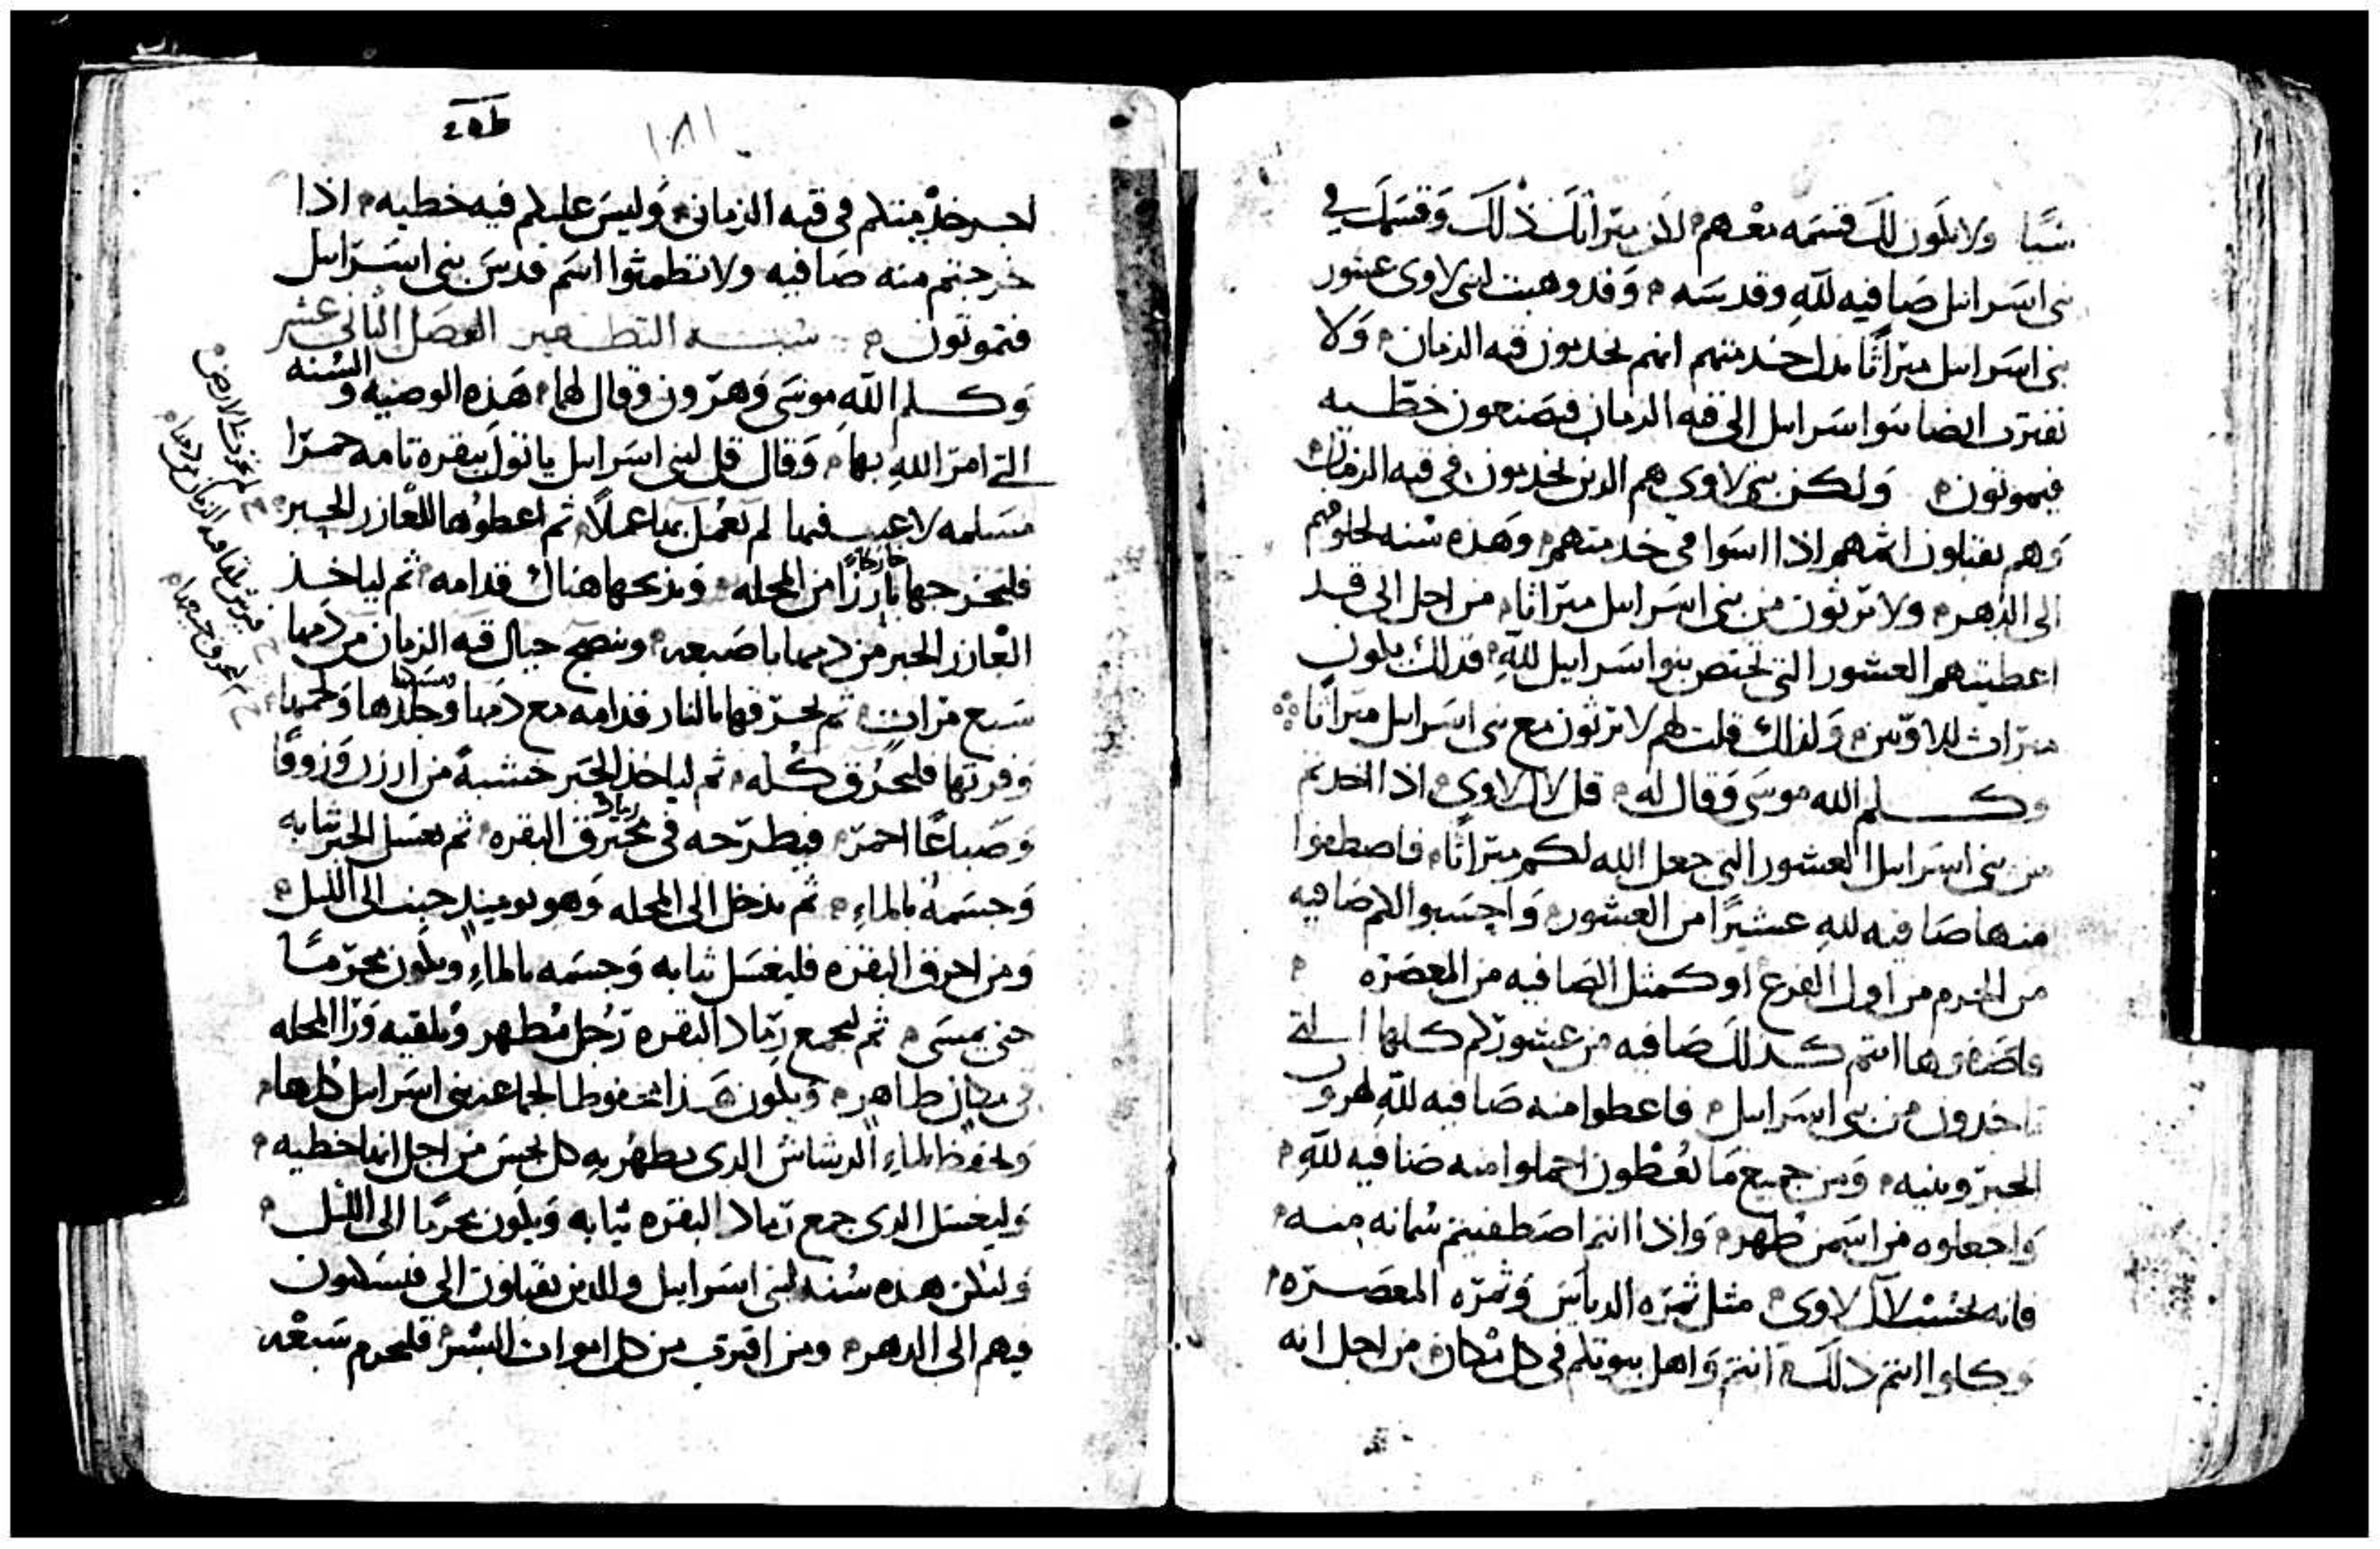 شيا ولا يكون لك قسمه معهم لان ميراثك ذلك وقسمك في
بني اسرايل صافيه لله وقدسه وقد وهبت لبني لاوي عشور
بني اسرايل ميراثا بدل خدمتهم انهم يخدمون قبه الزمان ولا
يقترب ايضا بنوا اسرايل الى قبه الزمان فيصنعون خطيه
فيموتون ولكن بني لاوي هم الذين يخدمون في قبه الزمان
وهم يقبلون اثمهم اذا اسوا في خدمتهم وهذه سنه لخلوفهم
الى الدهر ولا يرثون من بني اسرايل ميراثا من اجل اني قد
اعطيتهم العشور التي يختص بنوا اسرايل لله فذلك يكون
ميراث للاويين ولذلك قلت لهم لا ترثون مع بني اسرايل ميراثا
وكلم الله موسى وقال له قل لال لاوي اذا اخذتم
من بني اسرايل العشور التي جعل الله لكم ميراثا فاصطفوا
منها صافيه لله عشيرا من العشور واحسبوا لكم صافيه
من الخرم من اول الفرع او كمثل الصافيه من المعصره
فاصفوها انتم كذلك صافيه من عشوركم كلها التي
تاخذون من بني اسرايل فاعطوا منه صافيه لله لهرون
الحبر وبنيه ومن جميع ما تعطون احملوا منه صافيه لله
واجعلوه من اسمن طهره واذا انتم اصطفيتم سمانه منه
فانه يحسب لال لاوي مثل ثمره الدياس وثمره المعصره
وكلوا انتم ذلك انتم واهل بيوتكم في كل مكان من اجل انه
١٨١
اجر خدمتكم في قبه الزمان وليس عليكم فيه خطيه اذا
خرجتم منه صافيه ولا تطمثوا اسم قدس بني اسرايل
فتموتون سنه التطهير الفصل الثاني عشر
وكلم الله موسى وهرون وقال لهما هذه الوصيه والسنه
التي امر الله بها وقال قل لبني اسرايل ياتوك ببقره تامه حمرا
مسلمه لا عيب فيها لم تعمل بها عملا ثم اعطوها للعازر الحبر
فليخرجها بارزا خارجا من المحله ويذبحها هناك قدامه ثم لياخذ
العازر الحبر من دمها باصبعه وينضح حيال قبه الزمان من دمها
سبع مرات ثم يحرقها بالنار قدامه مع دمها وجلدها ولحمها
وفرثها فليحرق كله ثم لياخذ الحبر خشبة من ارز وزوفا
وصباغا احمر فيطرحه في محترق رماد البقره ثم يغسل الحبر ثيابه
وجسمه بالماء ثم يدخل الى المحله وهو يوميذ جنب الى الليل
ومن احرق البقره فليغسل ثيابه وجسمه بالماء ويكون محرما
حتى يمسي ثم ليجمع رماد البقره رجل مطهر ويلقيه ورا المحله
في مكان طاهر ويكون هذا محفوظا لجماعه بني اسرايل كلها
ويحفظ لماء الرشاش الذي يطهر به كل نجس من اجل انها خطيه
وليغسل الذي جمع رماد البقره ثيابه ويكون محرما الى الليل
ولتكن هذه سنه لبني اسرايل وللذين يقبلون الي فيسكنون
فيهم الى الدهر ومن اقترب من كل اموات البشر فليحرم سبعه